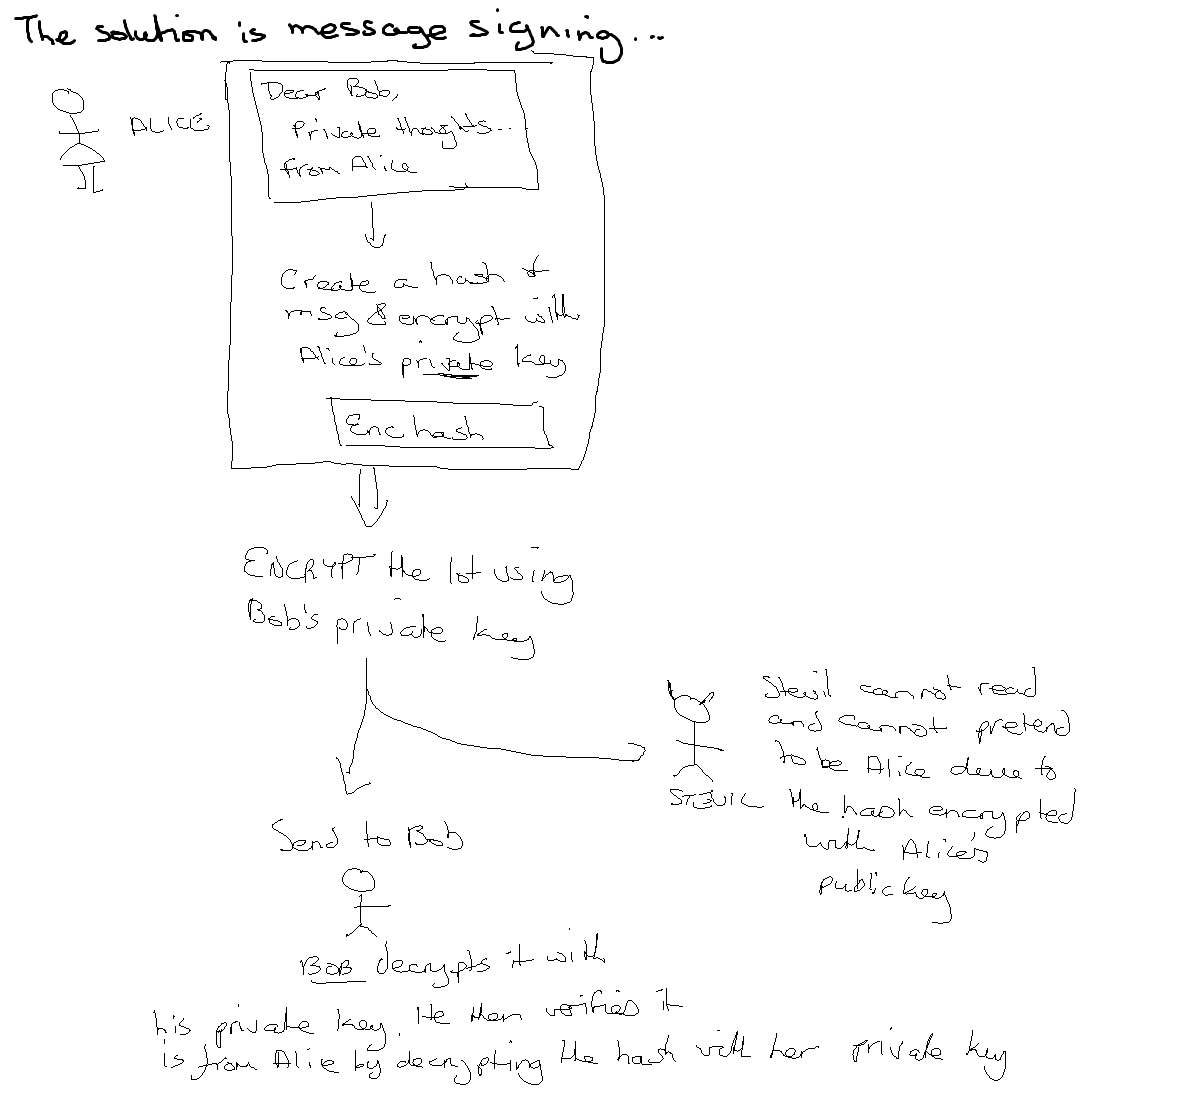 The solution is message signing...
ALICE
Dear Bob,
Private thoughts...
from Alice
Create a hash of
msg & encrypt with
Alice's private key
Enc hash
ENCRYPT the lot using
Bob's private key
STEVIL
Stevil cannot read
and cannot pretend
to be Alice due to
the hash encrypted
with Alice's
public key
Send to Bob
BOB decrypts it with
his private key. He then verifies it
is from Alice by decrypting the hash with her private key